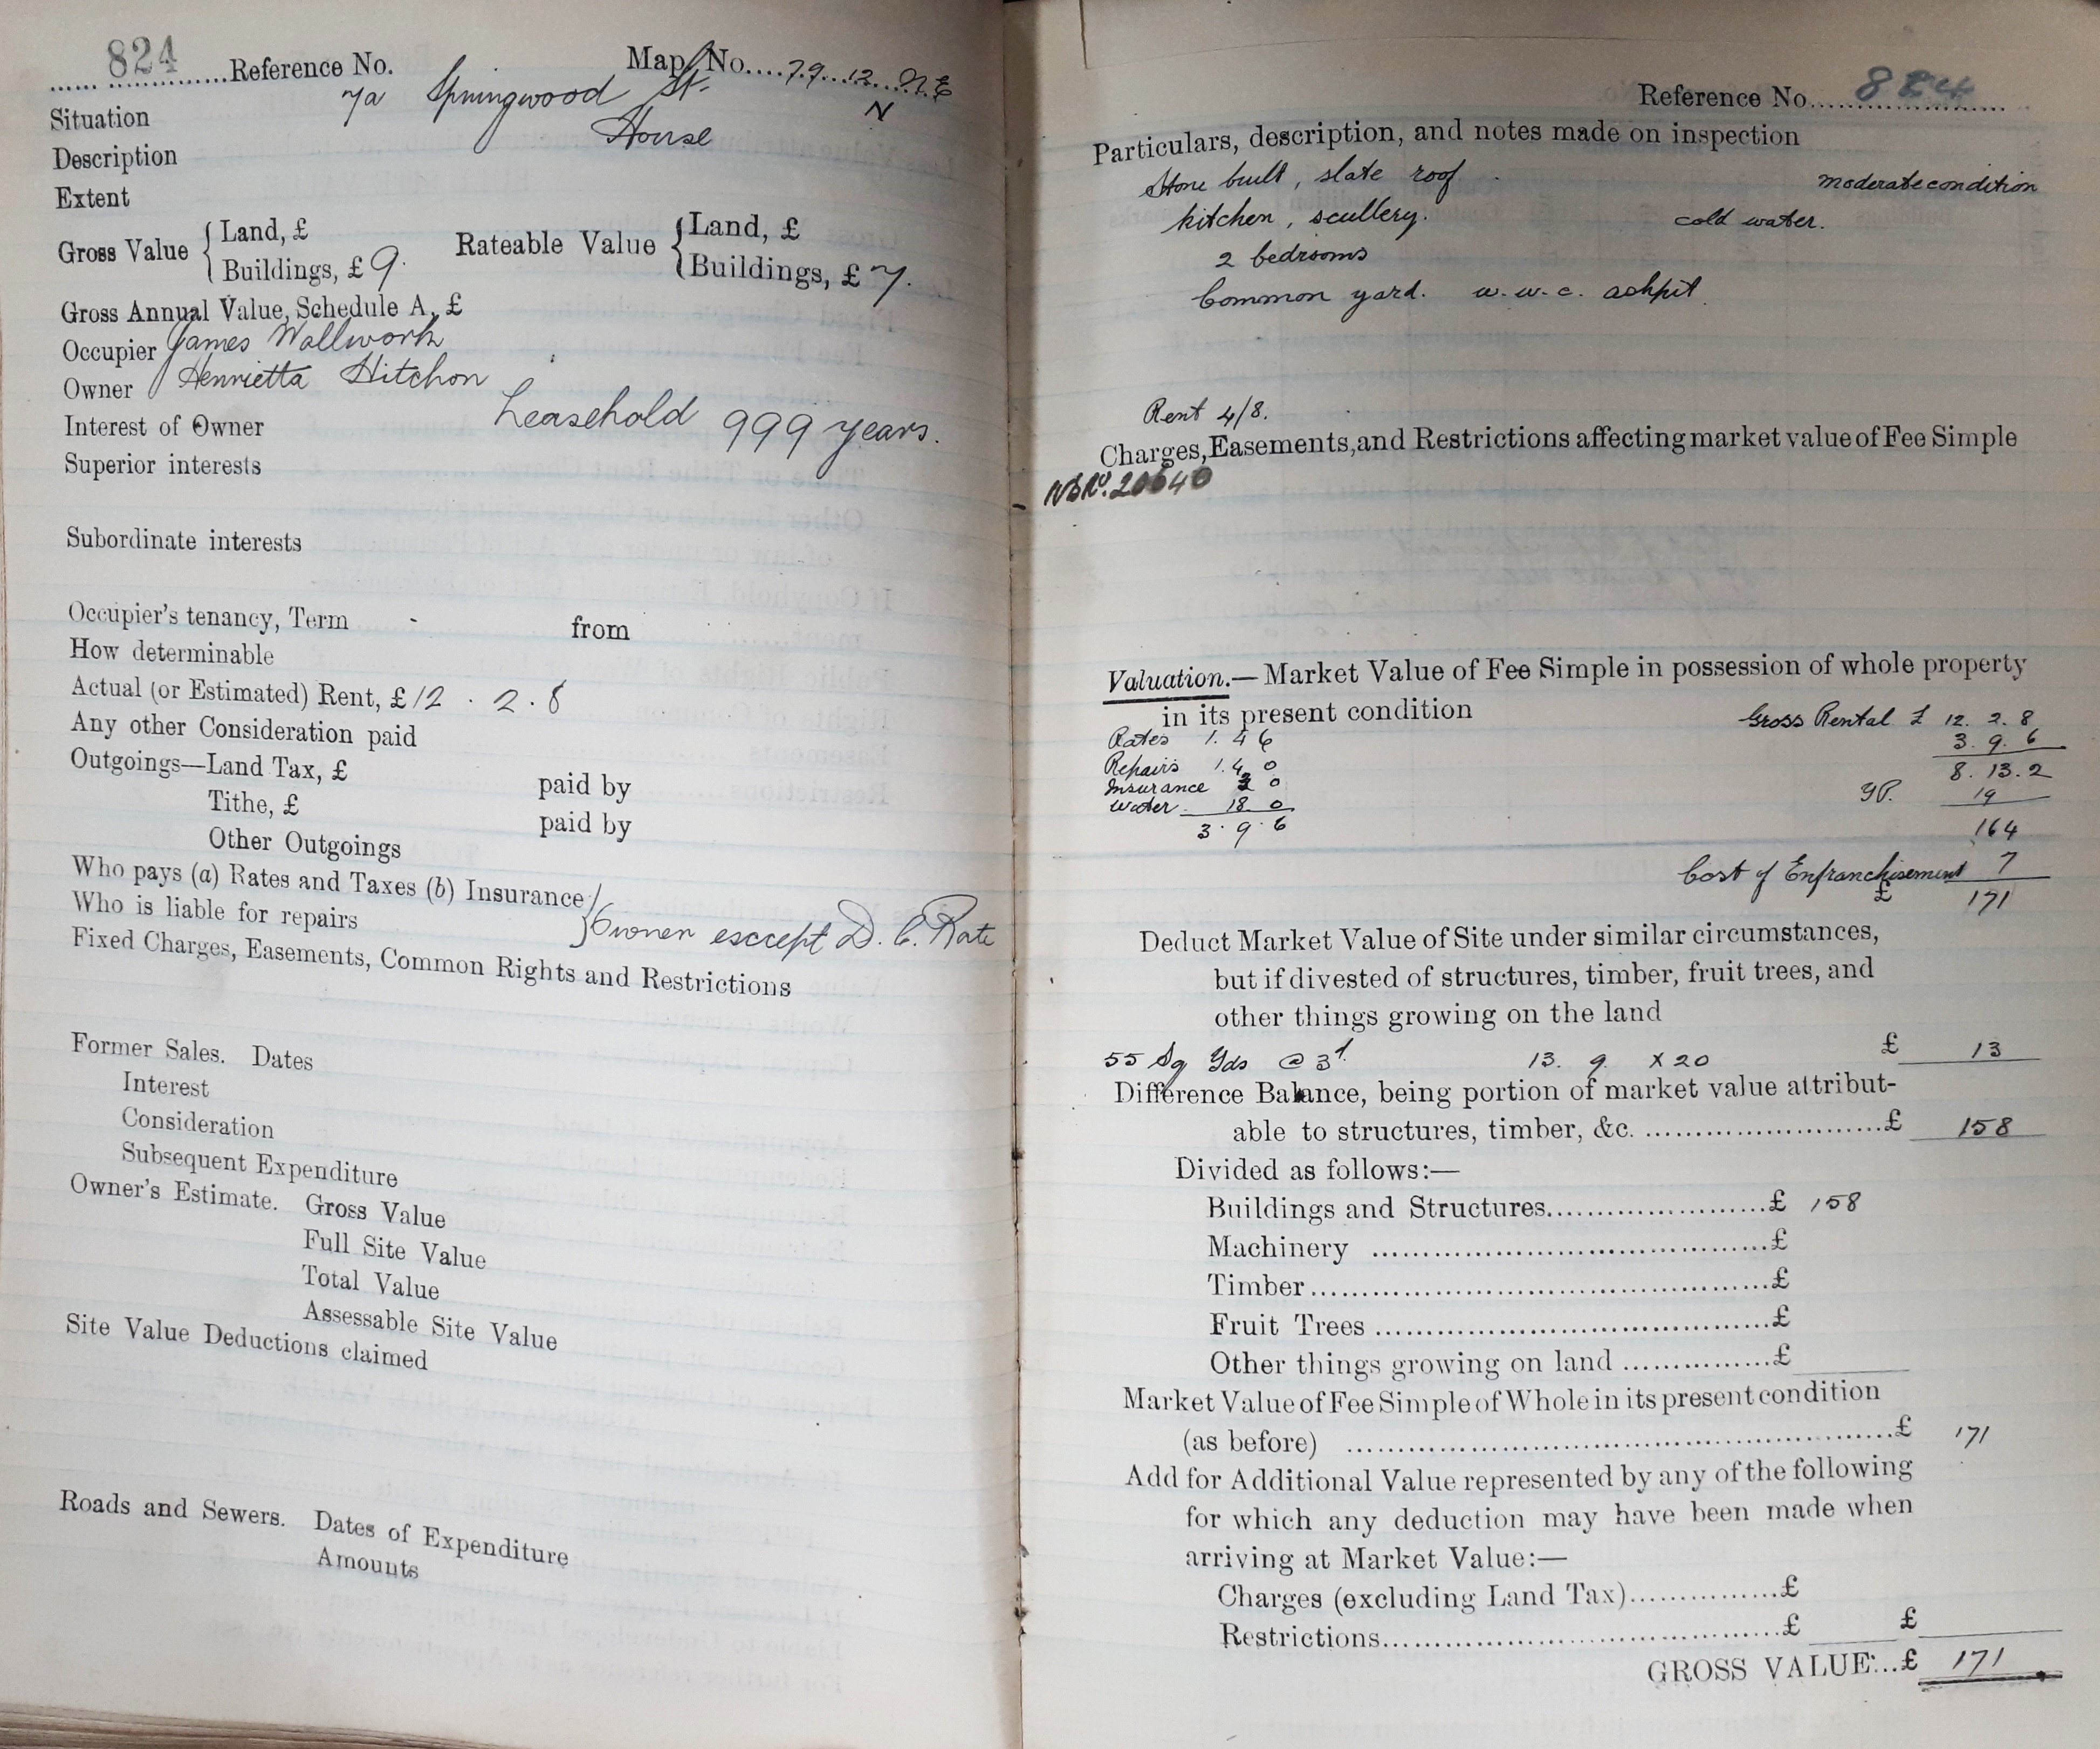 824 Reference No. Map No. 79 12 N.E
N
Situation 7a Springwood St.
Description House
Extent
Gross Value { Land, £
Buildings, £ 9.
Rateable Value { Land, £
Buildings, £ 7.
Gross Annual Value, Schedule A, £
Occupier James Wallwork
Owner Henrietta Hitchon
Interest of Owner Leasehold 999 years.
Superior interests
Subordinate interests
Occupier's tenancy, Term - from
How determinable
Actual (or Estimated) Rent, £ 12 . 2 . 8
Any other Consideration paid
Outgoings—Land Tax, £ paid by
Tithe, £ paid by
Other Outgoings
Who pays (a) Rates and Taxes (b) Insurance
Who is liable for repairs } Owner except D. C. Rate
Fixed Charges, Easements, Common Rights and Restrictions
Former Sales. Dates
Interest
Consideration
Subsequent Expenditure
Owner's Estimate. Gross Value
Full Site Value
Total Value
Assessable Site Value
Site Value Deductions claimed
Roads and Sewers. Dates of Expenditure
Amounts
Reference No. 824
Particulars, description, and notes made on inspection
Stone built, slate roof. moderate condition
kitchen, scullery. cold water.
2 bedrooms
Common yard. w.w.c. ashpit.
Rent 4/8.
Charges, Easements, and Restrictions affecting market value of Fee Simple
20640
Valuation.—Market Value of Fee Simple in possession of whole property
in its present condition
Gross Rental £ 12. 2. 8
Rates 1. 4 6
3. 9. 6
Repairs 1. 4. 0
8. 13. 2
Insurance 3 0
YP. 19
Water 18 0
3. 9. 6
164
Cost of Enfranchisement 7
£ 171
Deduct Market Value of Site under similar circumstances,
but if divested of structures, timber, fruit trees, and
other things growing on the land
55 Sq Yds @ 3d. 13. 9. X 20 £ 13
Difference Balance, being portion of market value attribut-
able to structures, timber, &c. £ 158
Divided as follows:—
Buildings and Structures £ 158
Machinery £
Timber £
Fruit Trees £
Other things growing on land £
Market Value of Fee Simple of Whole in its present condition
(as before) £ 171
Add for Additional Value represented by any of the following
for which any deduction may have been made when
arriving at Market Value:—
Charges (excluding Land Tax) £
Restrictions £ £
GROSS VALUE... £ 171